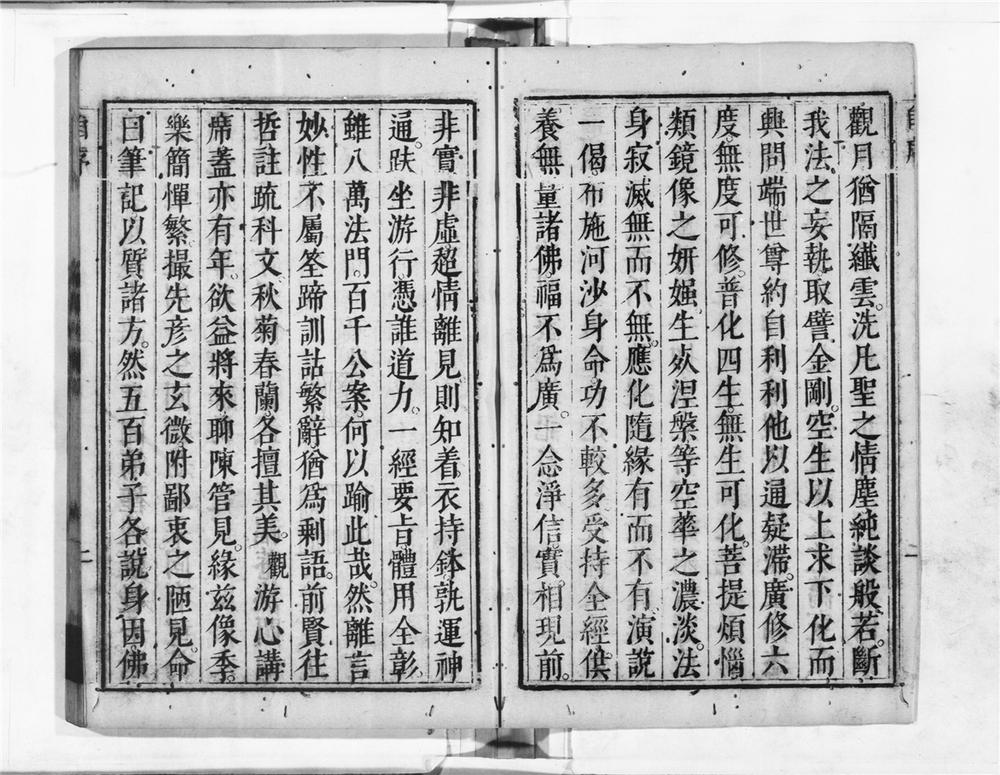 觀月猶隔纖雲。洗凡聖之情塵。純談般若。斷
我法之妄執。取譬金剛。空生以上求下化而
興問端。世尊約自利利他以通疑滯。廣修六
度。無度可修。普化四生。無生可化。菩提煩惱
類鏡像之妍媸。生死涅槃等空華之濃淡。法
身寂滅無而不無。應化隨緣有而不有。演說
一偈。布施河沙身命功不較多。受持全經。供
養無量諸佛。福不爲廣。一念淨信。實相現前。
非實非虛。超情離見。則知着衣持鉢。孰運神
通。趺坐游行。憑誰道力。一經要旨體用全彰。
雖八萬法門。百千公案。何以踰此哉。然離言
妙性。不屬筌蹄。訓詁繁辭猶爲剩語。前賢往
哲註疏科文。秋菊春蘭。各擅其美。觀游心講
席蓋亦有年。欲益將來聊陳管見。緣兹像季。
樂簡憚繁。撮先彥之玄微附鄙衷之陋見。命
曰筆記以質諸方。然五百弟子各說身因。佛
自序
二